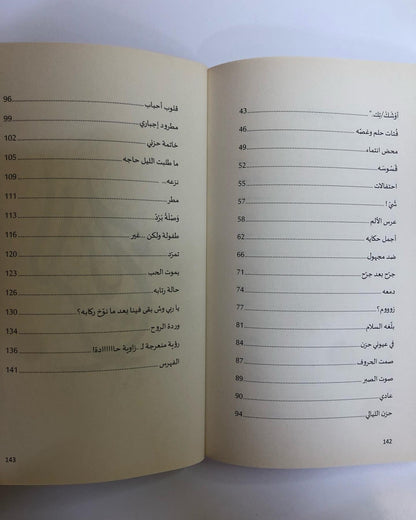 أوْشكُ/بَك.." 43
فُتات حلم وغصّه 46
محض انتماء 49
قسْوسَه 52
احتفالات 55
شيْ ! 57
عرس الألم 58
أجمل حكايه 62
ضد مجهول 66
جرْح بعد جرْح 71
دمعه 74
زووووم؟ 77
بلّغه السلام 81
في عيوني حزن 84
صمت الحروف 87
صوت الصبر 89
عادي 91
حزن الليالي 94
142
قلوب أحباب 96
مطرود إجباري 99
خاتمة حزني 102
ما طلبت الليل حاجه 105
نزعه.. 109
مطر 111
وَصْلَةُ بَرْدْ 113
طفولة ولكن ...غير 116
تمرّد 120
يموت الحب 123
حالة رتابه 126
يا ربي وش بقى فينا بعد ما نوّخ ركابه؟ 130
وردة الروح 134
رؤية منعرجة لـ..زاوية حـااااادة! 136
الفهرس 141
143